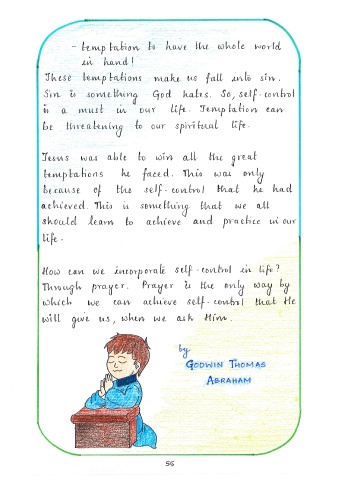 - temptation to have the whole world
in hand!
These temptations make us fall into sin.
Sin is something God hates. So, self-control
is a must in our life. Temptation can
be threatening to our spiritual life.
Jesus was able to win all the great
temptations he faced. This was only
because of the self-control that he had
achieved. This is something that we all
should learn to achieve and practice in our
life.
How can we incorporate self-control in life?
Through prayer. Prayer is the only way by
which we can achieve self-control that He
will give us, when we ask Him.
by
GODWIN THOMAS
ABRAHAM
56